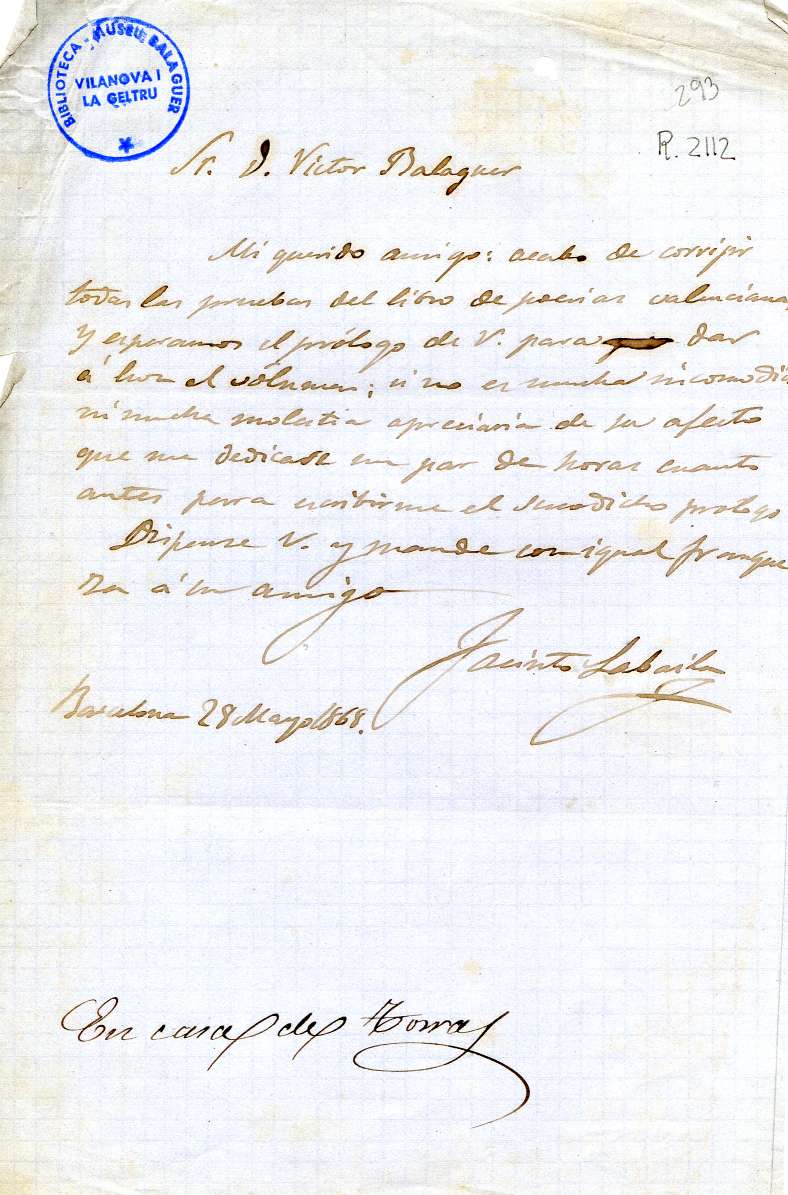 BIBLIOTECA - MUSEU BALAGUER
VILANOVA I
LA GELTRU
293
R. 2112
Sr. D. Victor Balaguer
Mi querido amigo: acabo de corrijir
todas las pruebas del libro de poesias valencianas,
y esperamos el prólogo de V. para dar
á luz el vólumen; si no es mucha incomodid
ni mucha molestia apreciaria de su afecto
que me dedicase un par de horas cuanto
antes para escribirme el susodicho prologo
Dispense V. y mande con igual franque
za á su amigo
Jacinto Labaila
Barcelona 28 Mayo 1868.
En casa de